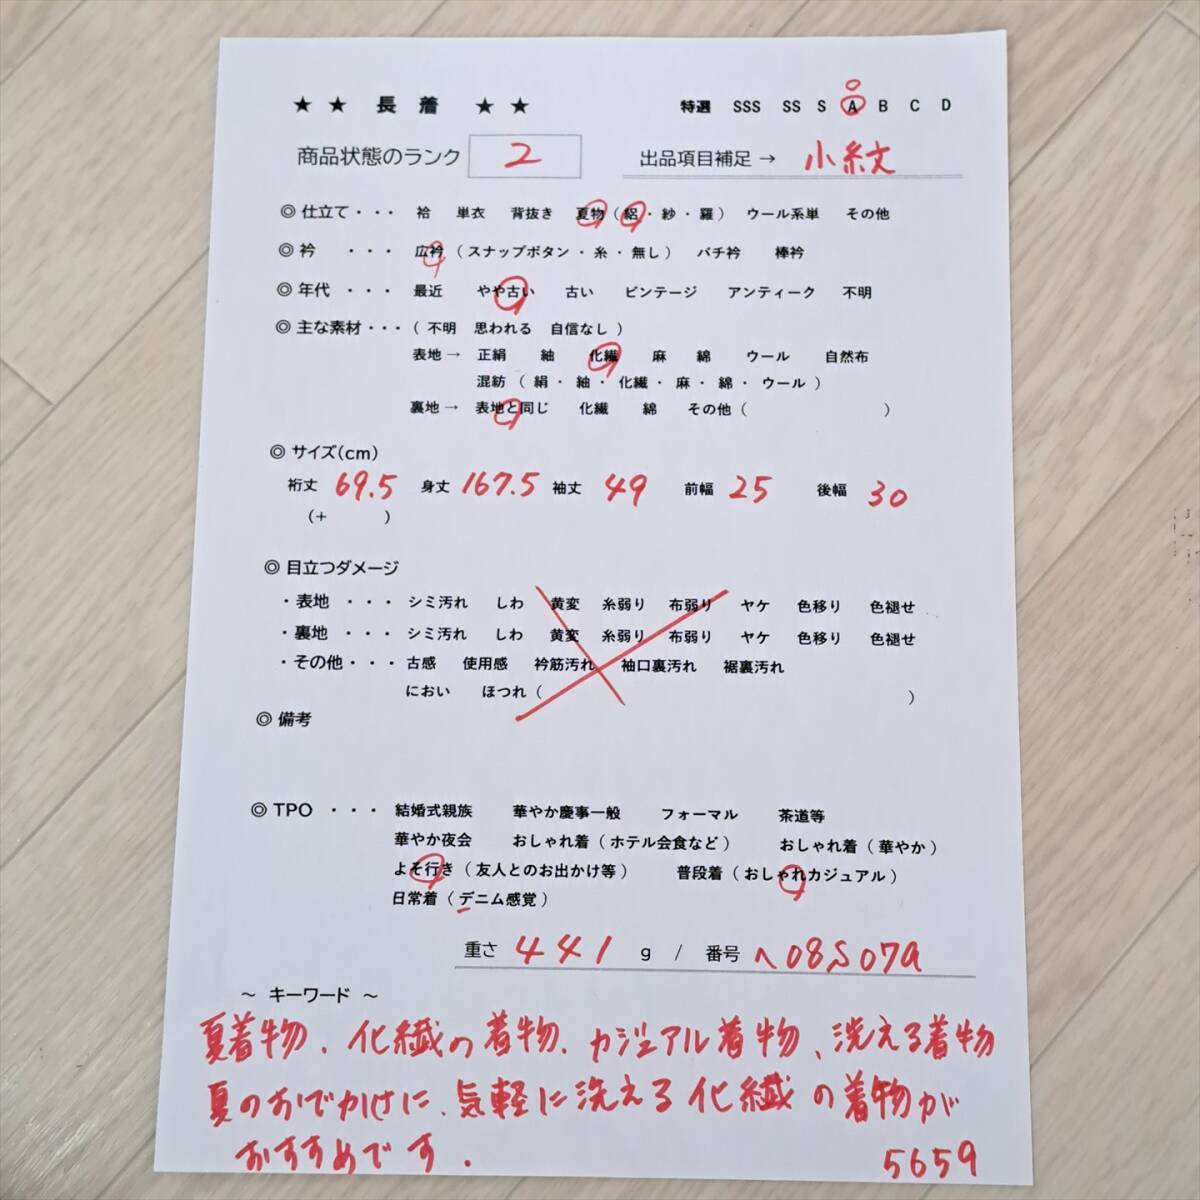 ★ ★ 長 着 ★ ★ 特選 SSS SS S A B C D
商品状態のランク 2 出品項目補足 → 小紋
◎ 仕立て・・・ 袷 単衣 背抜き 夏物（絽・紗・羅） ウール系単 その他
◎ 衿 ・・・ 広衿（スナップボタン・糸・無し） バチ衿 棒衿
◎ 年代 ・・・ 最近 やや古い 古い ビンテージ アンティーク 不明
◎ 主な素材・・・（ 不明 思われる 自信なし ）
表地 → 正絹 紬 化繊 麻 綿 ウール 自然布
混紡 （ 絹・ 紬・ 化繊・ 麻・ 綿・ ウール ）
裏地 → 表地と同じ 化繊 綿 その他（ ）
◎ サイズ(cm)
裄丈 69.5 身丈 167.5 袖丈 49 前幅 25 後幅 30
（+ ）
◎ 目立つダメージ
・表地 ・・・ シミ汚れ しわ 黄変 糸弱り 布弱り ヤケ 色移り 色褪せ
・裏地 ・・・ シミ汚れ しわ 黄変 糸弱り 布弱り ヤケ 色移り 色褪せ
・その他・・・ 古感 使用感 衿筋汚れ 袖口裏汚れ 裾裏汚れ
におい ほつれ（ ）
◎ 備考
◎ TPO ・・・ 結婚式親族 華やか慶事一般 フォーマル 茶道等
華やか夜会 おしゃれ着（ホテル会食など） おしゃれ着（華やか）
よそ行き（友人とのお出かけ等） 普段着（おしゃれカジュアル）
日常着（デニム感覚）
重さ 441 g / 番号 ヘ08S07a
～ キーワード ～
夏着物、化繊の着物、カジュアル着物、洗える着物
夏のおでかけに、気軽に洗える化繊の着物が
おすすめです.
5659